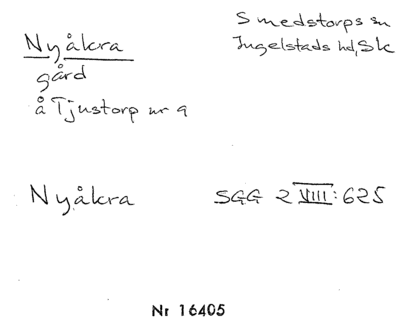 Nyåkra
gård
å Tjustorp nr 9
Smedstorps sn
Ingelstads hd, Sk
Nyåkra SGG 2 VIII: 625
Nr 16405